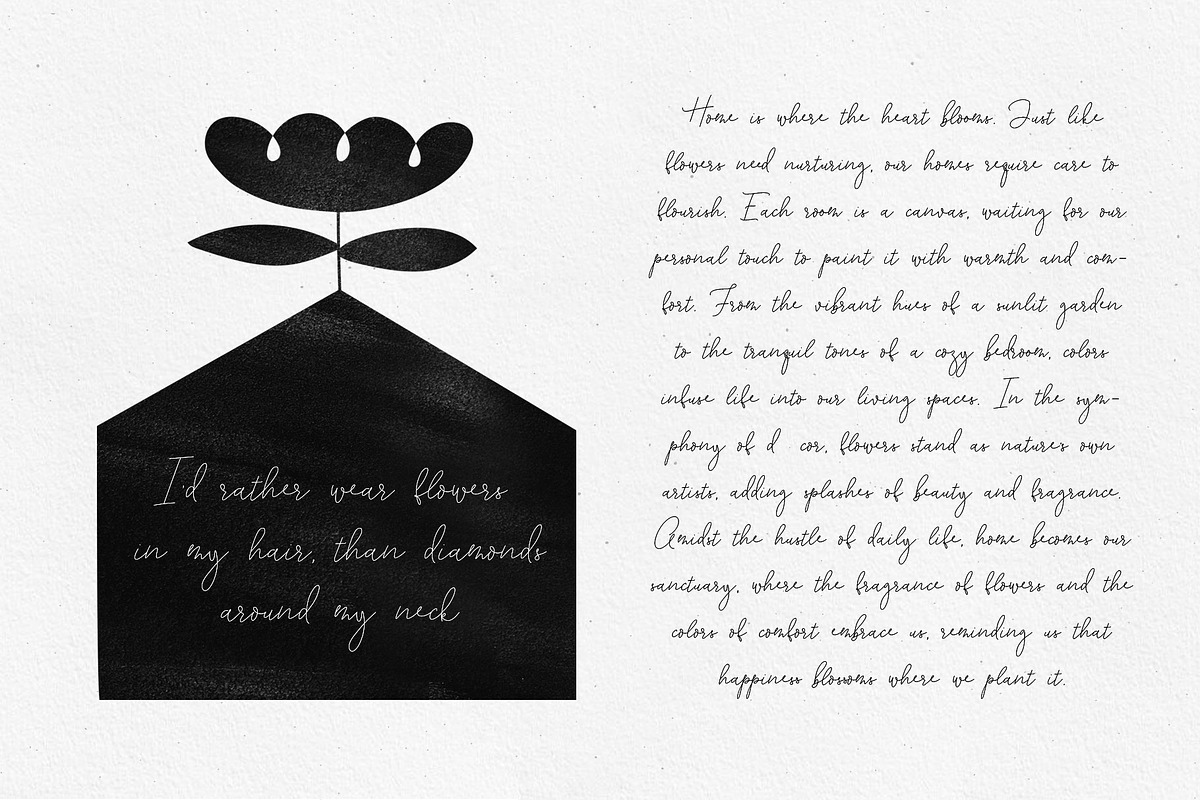 I'd rather wear flowers
in my hair, than diamonds
around my neck
Home is where the heart blooms. Just like
flowers need nurturing, our homes require care to
flourish. Each room is a canvas, waiting for our
personal touch to paint it with warmth and com-
fort. From the vibrant hues of a sunlit garden
to the tranquil tones of a cozy bedroom, colors
infuse life into our living spaces. In the sym-
phony of d cor, flowers stand as nature's own
artists, adding splashes of beauty and fragrance.
Amidst the hustle of daily life, home becomes our
sanctuary, where the fragrance of flowers and the
colors of comfort embrace us, reminding us that
happiness blossoms where we plant it.